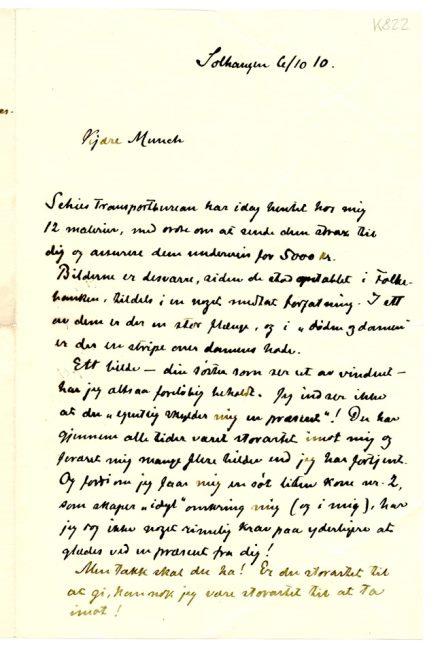 K822
Solhaugen 6/10 10.
es-
Kjære Munch
Schies Transportbureau har idag hentet hos mig
12 malerier, med ordre om at sende dem strax til
dig og assurere dem underveis for 5000 kr.
Billederne er desværre, siden de stod opstablet i Folke-
banken, tildels i en noget medtat forfatning. I ett
av dem er der en stor flænge, og i „døden og damen"
er der en stripe over damens hode.
Ett bilde – din søster som ser ut av vinduet –
har jeg altsaa foreløbig beholdt. Jeg indser ikke
at du „egentlig skylder mig en præsent"! Du har
gjennem alle tider været storartet imot mig og
foræret mig mange flere bilder end jeg har fortjent.
Og fordi om jeg faar mig en søt liten kone nr. 2,
som skaper „idyl" omkring mig (og i mig), har
jeg dog ikke noget rimelig krav paa yderligere at
glædes ved en præsent fra dig!
Men takk skal du ha! Er du storartet til
at gi, kan nok jeg være storartet til at ta
imot!